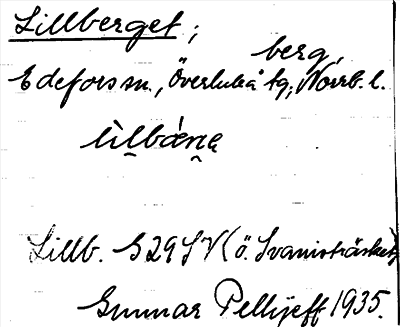 Lillberget;
berg,
Edefors sn., Överluleå tg., Norrb. l.
lìlbárıa
Lillb. G29SV (ö. Svanisträsket)
Gunnar Pellijeff 1935.